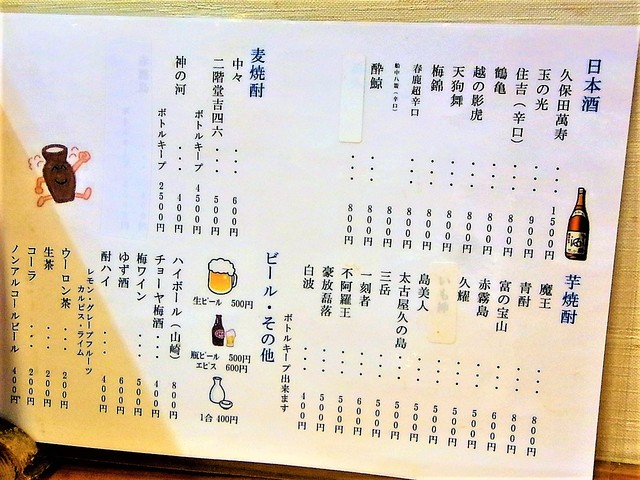 日本酒
久保田萬寿 ・・・ 1500円
玉の光 ・・・ 900円
住吉(辛口) ・・ 800円
鶴亀 ・・・ 800円
越の影虎 ・・・ 800円
天狗舞 ・・・ 800円
梅錦 ・・・ 800円
春鹿超辛口 ・・・ 800円
船中八策(辛口) ・・・ 800円
酔鯨 ・・・ 800円
・・・ 800円
麦焼酎
中々 ・・・ 600円
二階堂吉四六 ・・ 500円
ボトルキープ 4500円
神の河 ・・・ 400円
ボトルキープ 2500円
芋焼酎
魔王 ・・・ 800円
青酎 ・・・ 800円
富の宝山 ・・・ 600円
赤霧島 ・・・ 500円
久耀 ・・・ 500円
・・・ 500円
島美人 ・・・ 500円
太古屋久の島 ・・・ 500円
三岳 ・・・ 500円
一刻者 ・・・ 600円
不阿羅王 ・・・ 500円
豪放磊落 ・・・ 500円
白波 ・・・ 400円
ボトルキープ出来ます
ビール・その他
生ビール 500円
瓶ビール 500円
エビス 600円
1合 400円
ハイボール(山崎) 800円
チョーヤ梅酒・・ 400円
梅ワイン ・・・ 500円
ゆず酒 ・・・ 600円
酎ハイ ・・・ 400円
レモン・グレープフルーツ
カルピス・ライム
ウーロン茶 ・・・ 200円
生茶 ・・・ 200円
コーラ ・・・ 200円
ノンアルコールビール 400円